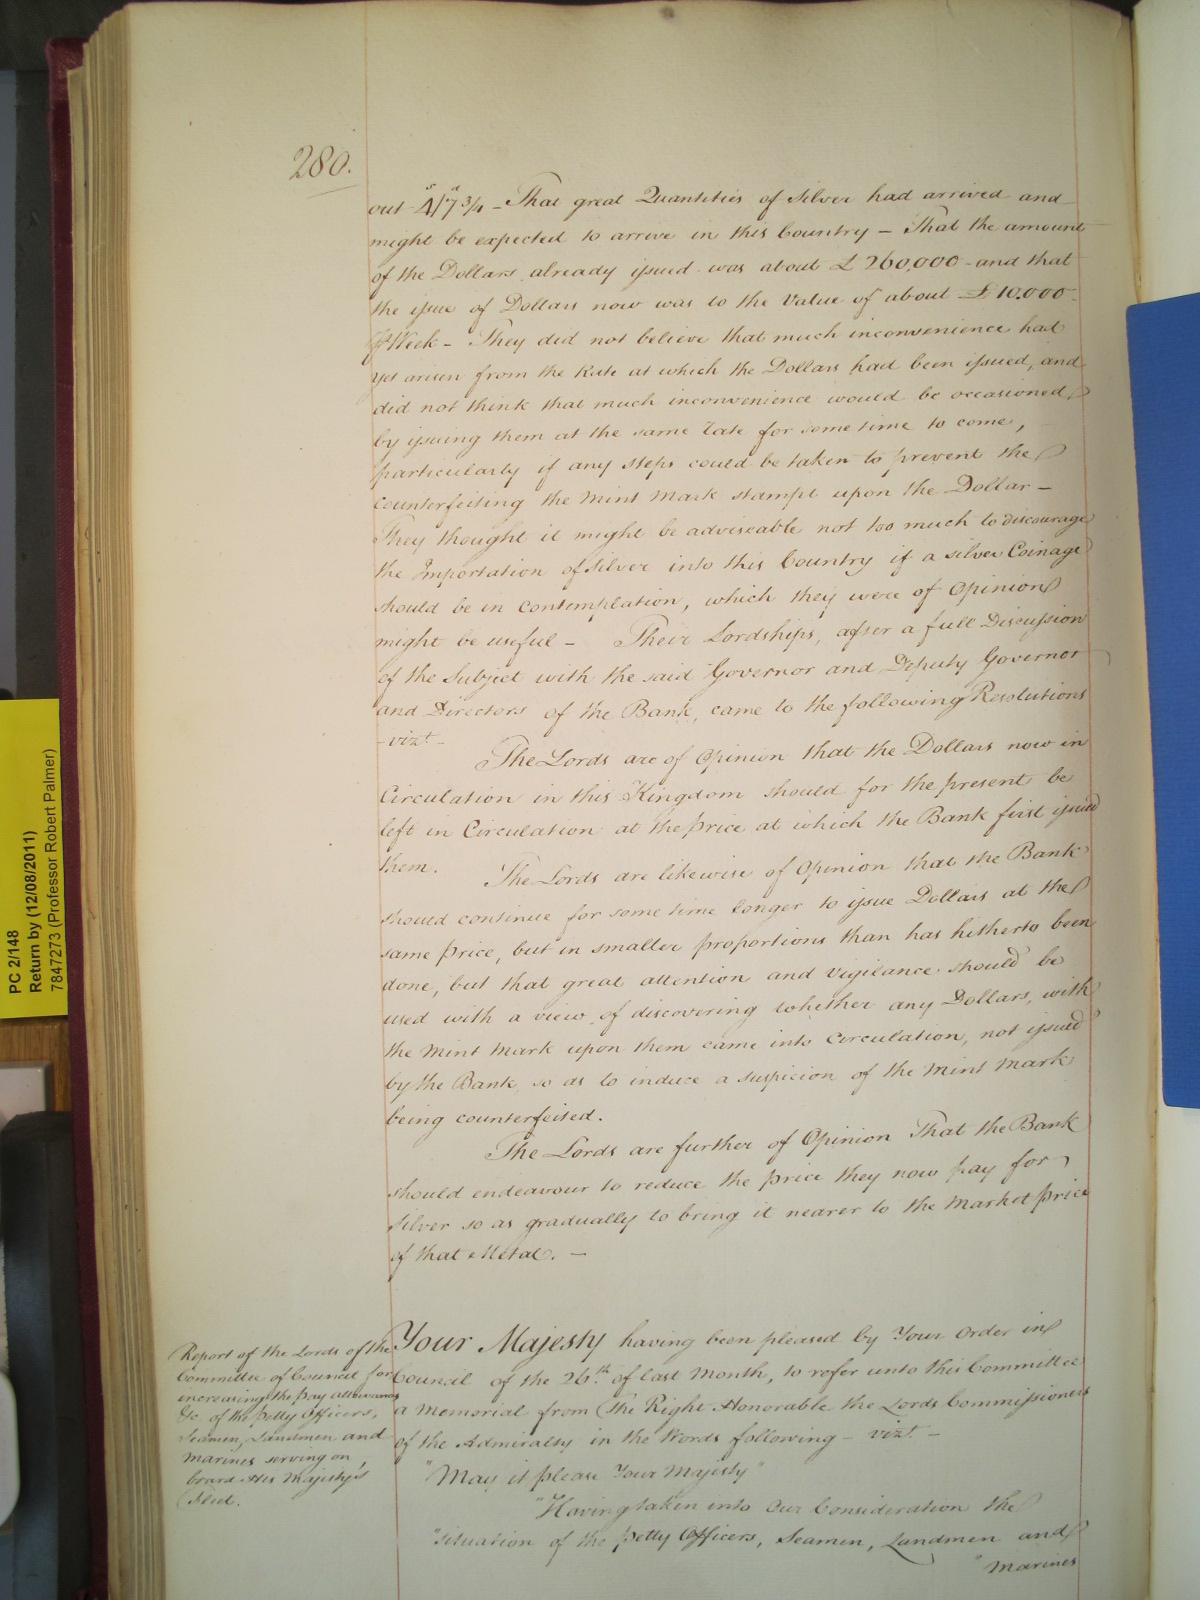 280.
out 4ˢ/7ᵈ¾ – That great Quantities of Silver had arrived and
might be expected to arrive in this Country – That the amount
of the Dollars already issued was about £260,000 – and that
the issue of Dollars now was to the Value of about £10.000
⅌ Week – They did not believe that much inconvenience had
yet arisen from the Rate at which the Dollars had been issued, and
did not think that much inconvenience would be occasioned
by issuing them at the same rate for some time to come,
particularly if any steps could be taken to prevent the
counterfeiting the Mint Mark stampt upon the Dollar –
They thought it might be adviseable not too much to discourage
the Importation of Silver into this Country if a silver Coinage
should be in contemplation, which they were of Opinion
might be useful – Their Lordships, after a full Discussion
of the Subject with the said Governor and Deputy Governor
and Directors of the Bank, came to the following Resolutions
– vizt –
The Lords are of Opinion that the Dollars now in
Circulation in this Kingdom should for the present be
left in Circulation at the price at which the Bank first issued
them.
The Lords are likewise of Opinion that the Bank
should continue for some time longer to issue Dollars at the
same price, but in smaller proportions than has hitherto been
done, but that great attention and vigilance should be
used with a view of discovering whether any Dollars, with
the Mint Mark upon them came into Circulation, not issued
by the Bank, so as to induce a suspicion of the Mint Mark
being counterfeited.
The Lords are further of Opinion That the Bank
should endeavour to reduce the price they now pay for
Silver so as gradually to bring it nearer to the Market price
of that Metal. –
Report of the Lords of the
Committee of Council for
increasing the pay allowances
&c of the Petty Officers,
Seamen, Landmen and
Marines serving on
board His Majesty's
Fleet.
Your Majesty having been pleased by Your Order in
Council of the 26th. of last Month, to refer unto this Committee
a Memorial from The Right Honorable the Lords Commissioners
of the Admiralty in the Words following – vizt. –
"May it please Your Majesty"
"Having taken into Our Consideration the
"situation of the Petty Officers, Seamen, Landmen and
"Marines
PC 2/148
Return by (12/08/2011)
7847273 (Professor Robert Palmer)